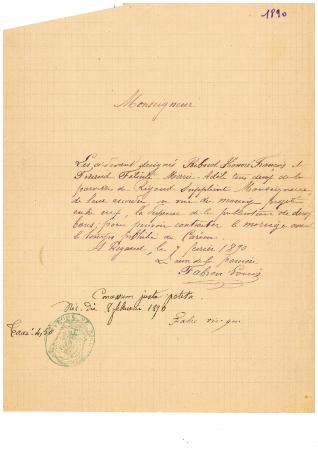 1890
Monseigneur
Les ci-devant designés Ribaud François et
Féraud Félicité Marie-Adèle tous deux de la
paroisse de Rigaud Supplient Monseigneur
de leur accorder en vue de mariage projeté
entre eux, la dispense de la publication de deux
bans, pour pouvoir contracter le mariage avant
le temps prohibé du Carême
Rigaud, le 7 février 1890
L'un de la paroisse
Fabron Louis
Concessum juxta petita
Nic. die 8 februarii 1890
Taxe: 4,50
vic. gen.